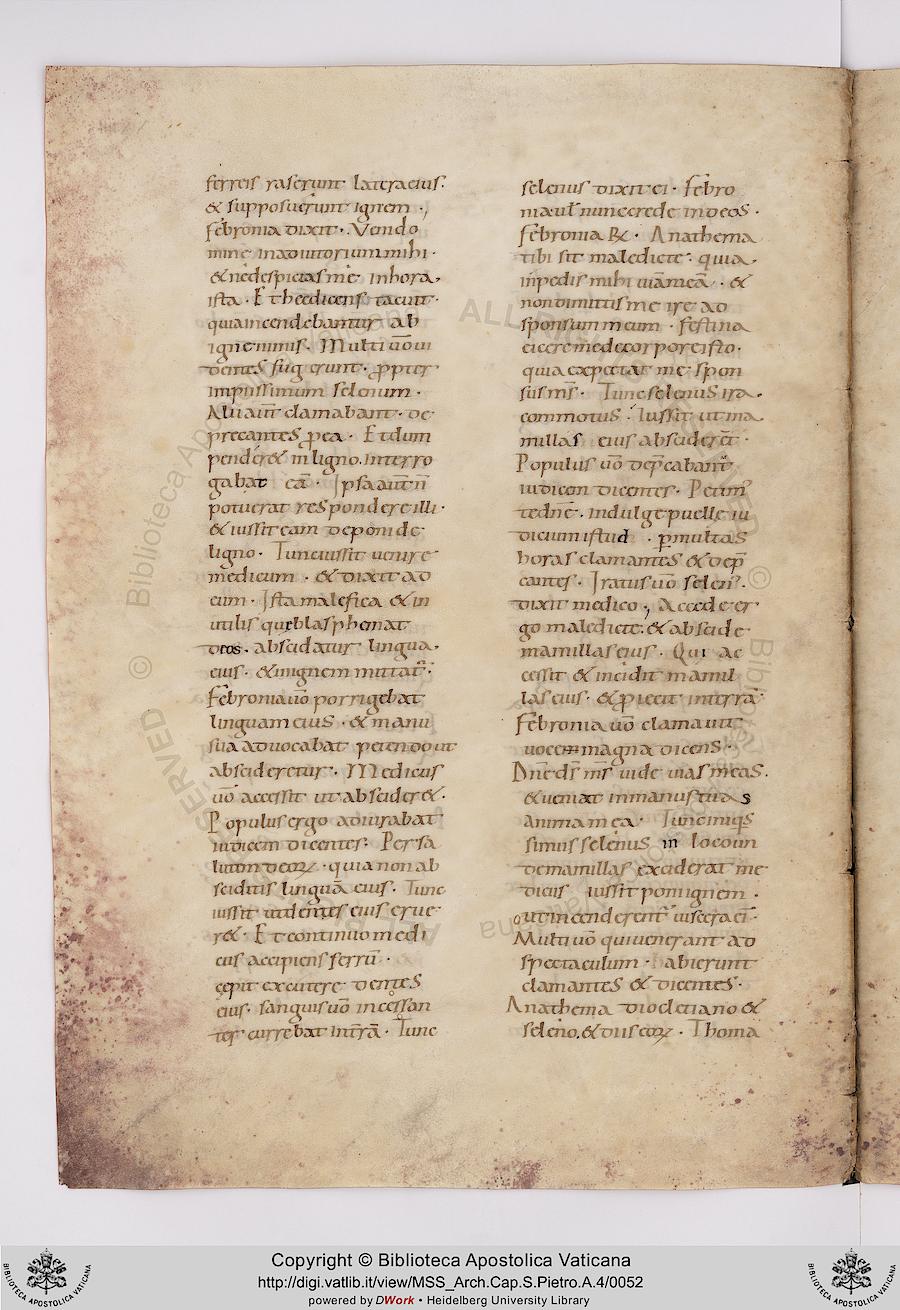 ferreis raserunt latera eius.
& supposuerunt ignem .,
febronia dixit . Vendo
mine inadiutorium mihi .
& ne despicias me inhora,
ista . Et hec dicens tacuit .
quia incendebantur ab
igne nimis . Multi u͞o ui
dentes fugerunt . propter
impiissimum selenum .
Alii aut̄ clamabant . de
precantes ꝓea . Et dum
pender& in ligno . interro
gabat eā . Ipsa aut̄ n̄
potuerat respondere illi .
& iussit eam deponi de
ligno . Tunc iussit uenire
medicum . & dixit ad
eum . Ista malefica & in
utilis que blasphemat
deos . abscidatur lingua,
eius . & inignem mittat᷑ .
Febronia u͞o porrigebat
linguam eius . & manu
sua aduocabat petendo ut
abscideretur . Medicus
u͞o accessit ut abscider& .
Populus ergo adiurabat
iudicem dicentes . Per sa
lutem deoꝝ . quia non ab
sciditis linguā eius . Tunc
iussit ut dentes eius erue
r& . Et continuo medi
cus accipiens ferrū .
cepit excutere dentes
eius . sanguis u͞o incessan
ter currebat in t͞rrā . Tunc
selenus dixit ei . Febro
nia ul̄ nunc crede in deos .
febronia R͞x . Anathema
tibi sit maledicte . quia .
inpedis mihi uiā meā . &
non dimittis me ire ad
sponsum meum . festina
eicere me de corpore isto .
quia expectat me spon
sus m͞s . Tunc selenus ira,
commotus . Iussit ut ma
millas eius absciderēt .
Populus u͞o dep̄cabant᷑
iudicem dicentes . Petim᷒
te dn͞e . indulge puelle iu
dicium istud . ꝑ multas
horas clamantes & dep̄
cantes . Iratus u͞o selen᷒ .
dixit medico ., Accede er
go maledicte . & abscide
mamillas eius . Qui ac
cessit & incidit mamil
las eius . & ꝓiecit in terrā
Febronia u͞o clamauit
uoce magna dicens .
Dn͞e d͞s m͞s uide uias meas .
& ueniat in manus tuas
anima mea . Tunc iniqis
simus selenus in locum
de mamillas exciderat me
dicus iussit poni ignem .
ut incenderent᷑ uiscera ei᷒ .
Multi u͞o qui uenerant ad
spectaculum . abierunt
clamantes & dicentes .
Anathema diocletiano &
seleno, & diis eoꝝ . Thoma
Copyright © Biblioteca Apostolica Vaticana
http://digi.vatlib.it/view/MSS_Arch.Cap.S.Pietro.A.4/0052
powered by DWork • Heidelberg University Library